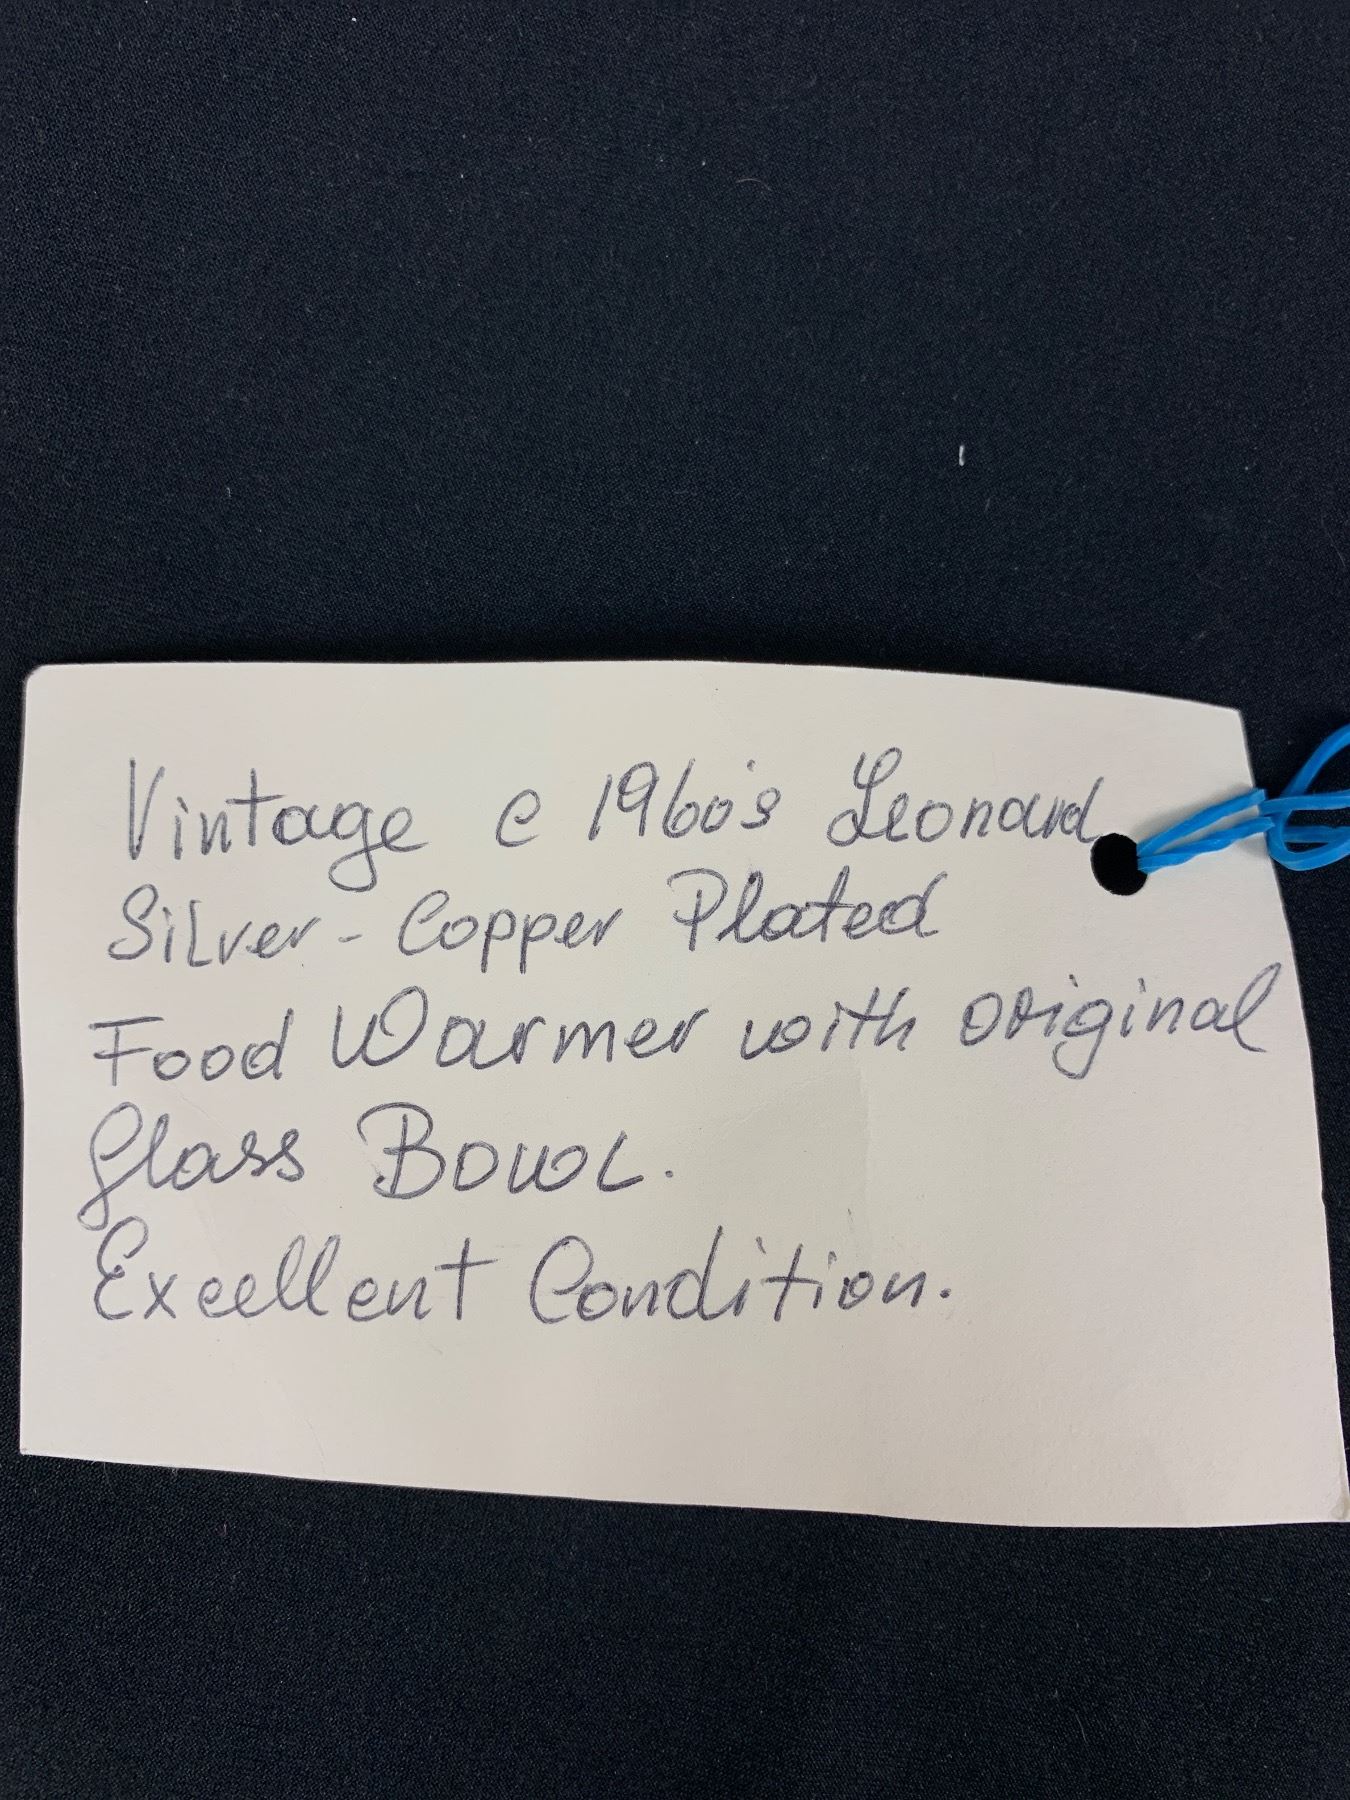 Vintage c 1960's Leonard
Silver-Copper Plated
Food Warmer with original
Glass Bowl.
Excellent Condition.